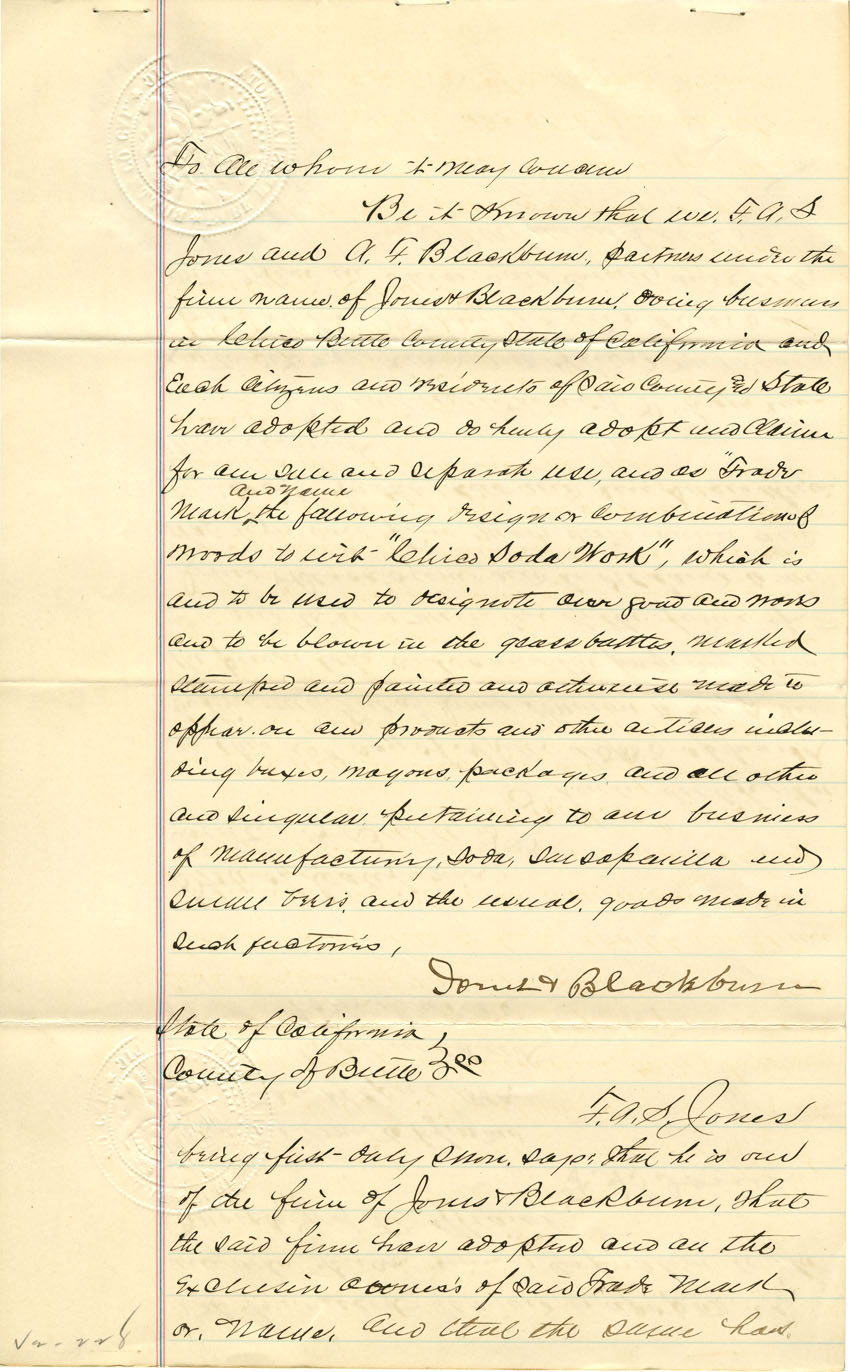 To All whom it may Concern
Be it Known that we. F. A. S
Jones and A. F. Blackburn, partners under the
firm name of Jones & Blackburn. doing business
in Chico Butte County State of California and
Each Citizens and residents of said County and State
have adopted and do hereby adopt and Claim
for our sole and separate use, and as "Trade
and name
Mark, the following design or Combination of
words to wit "Chico Soda Work", which is
and to be used to designate our good and works
and to be blown in the glass bottles, marked
stamped and painted and otherwise made to
appear on our products and other articles inclu-
ding boxes, wagons, packages, and all other
and singular pertaining to our business
of manufacturing, soda, sarsaparilla and
small beers, and the usual, goods made in
such factories,
Jones & Blackburn
State of California
County of Butte } ss
F. A. S. Jones
being first duly sworn, says: that he is one
of the firm of Jones & Blackburn, that
the said firm have adopted and are the
Exclusive owners of said Trade Mark
or, Name, and that the same has